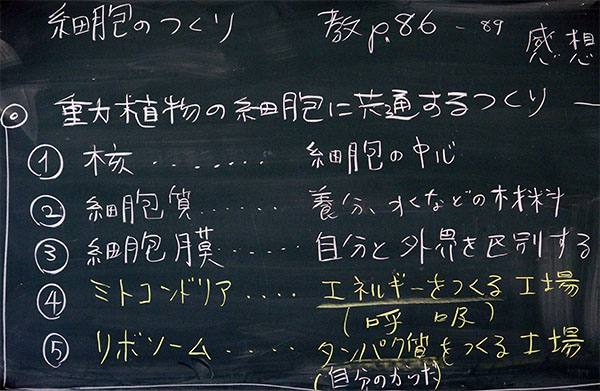 細胞のつくり 教p.86-89 感想
◎ 動植物の細胞に共通するつくり
① 核........ 細胞の中心
② 細胞質...... 養分、水などの材料
③ 細胞膜...... 自分と外界を区別する
④ ミトコンドリア.... エネルギーをつくる工場
(呼吸)
⑤ リボソーム..... タンパク質をつくる工場
(自分のからだ)